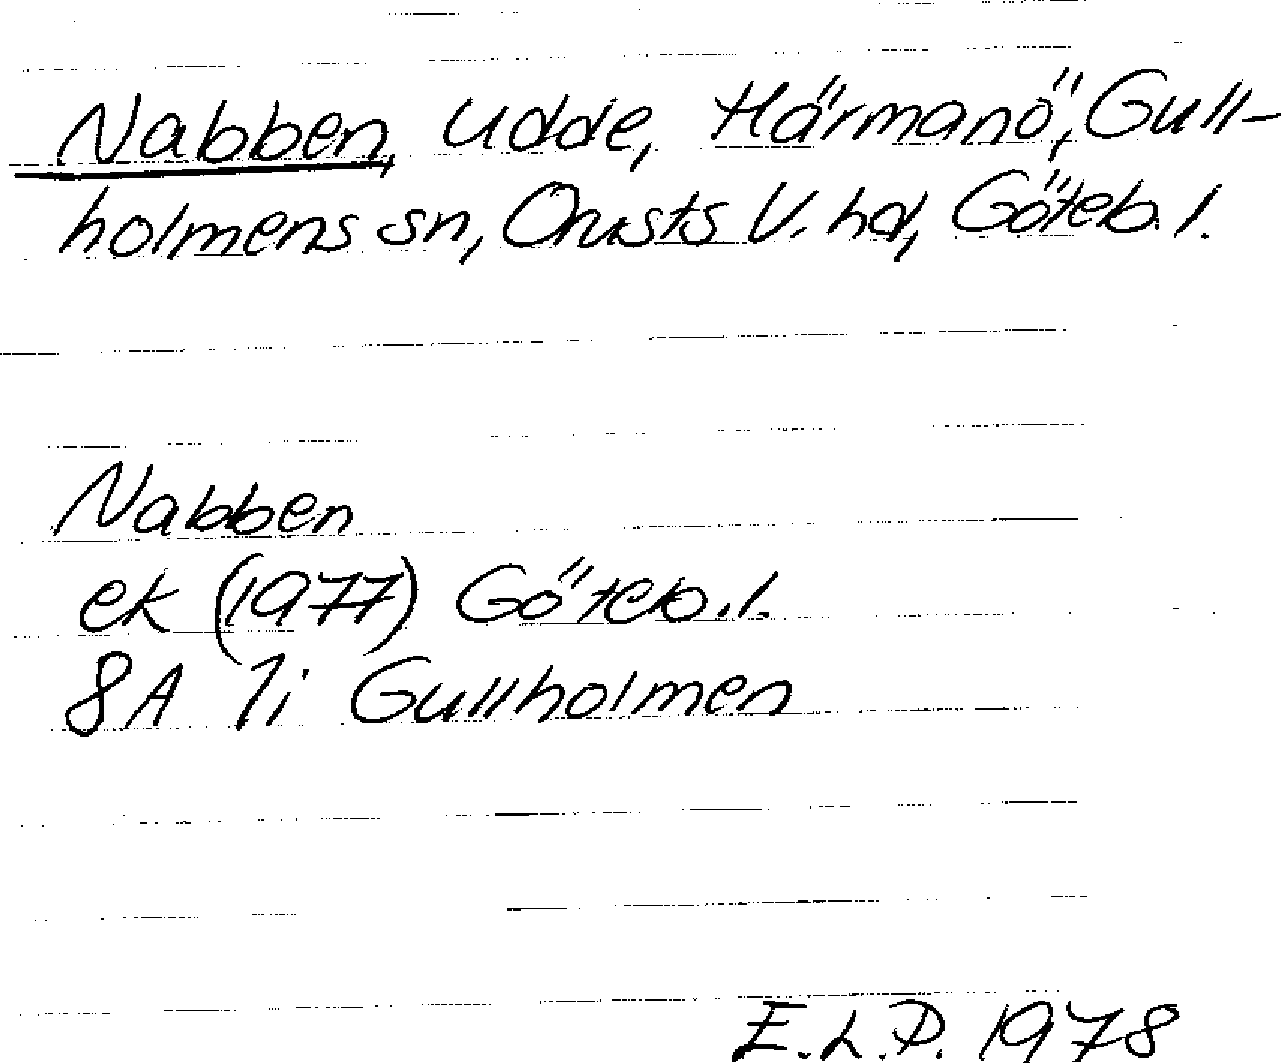 Nabben, udde, Härmanö, Gull-
holmens sn, Orusts V. hd, Göteb. l.
Nabben
ek (1977) Göteb. l.
8A 7i Gullholmen
E.L.P. 1978